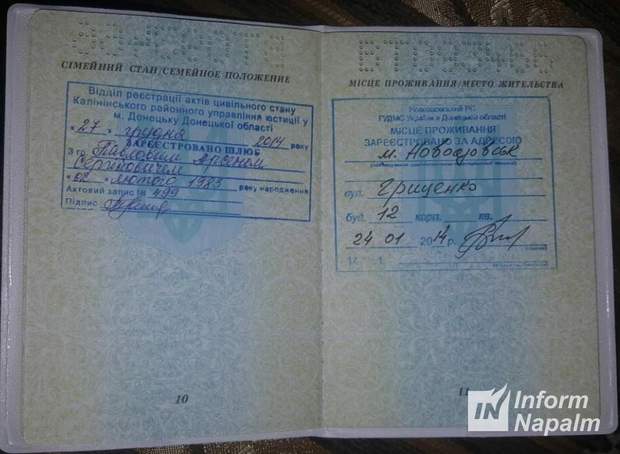 СІМЕЙНИЙ СТАН/СЕМЕЙНОЕ ПОЛОЖЕНИЕ
Відділ реєстрації актів цивільного стану
Калінінського районного управління юстиції у
м. Донецьку Донецької області
"27" грудня 2014 року
ЗАРЕЄСТРОВАНО ШЛЮБ
З гр. Павловим Арсеном
Сергійовичем
"02" лютого 1983 року народження
Актовий запис № 499
Підпис
10
МІСЦЕ ПРОЖИВАННЯ/МЕСТО ЖИТЕЛЬСТВА
Новоазовський РС
ГУДМС України в Донецькій області
МІСЦЕ ПРОЖИВАННЯ
ЗАРЕЄСТРОВАНО ЗА АДРЕСОЮ
м. Новоазовськ
вул. Грищенко
буд. 12 корп. кв.
24 01 2014 р.
11
Inform
Napalm